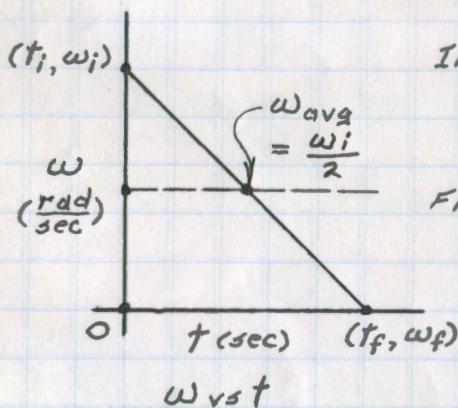 (ti, ωi)
ωavg
= ωi/2
ω
(rad/sec)
0
t (sec)
(tf, ωf)
ω vs t